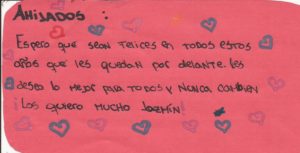 AHIJADOS :
Espero que sean felices en todos estos
años que les quedan por delante. les
deseo lo mejor para todos y nunca cambien
Los quiero mucho Jazmín!